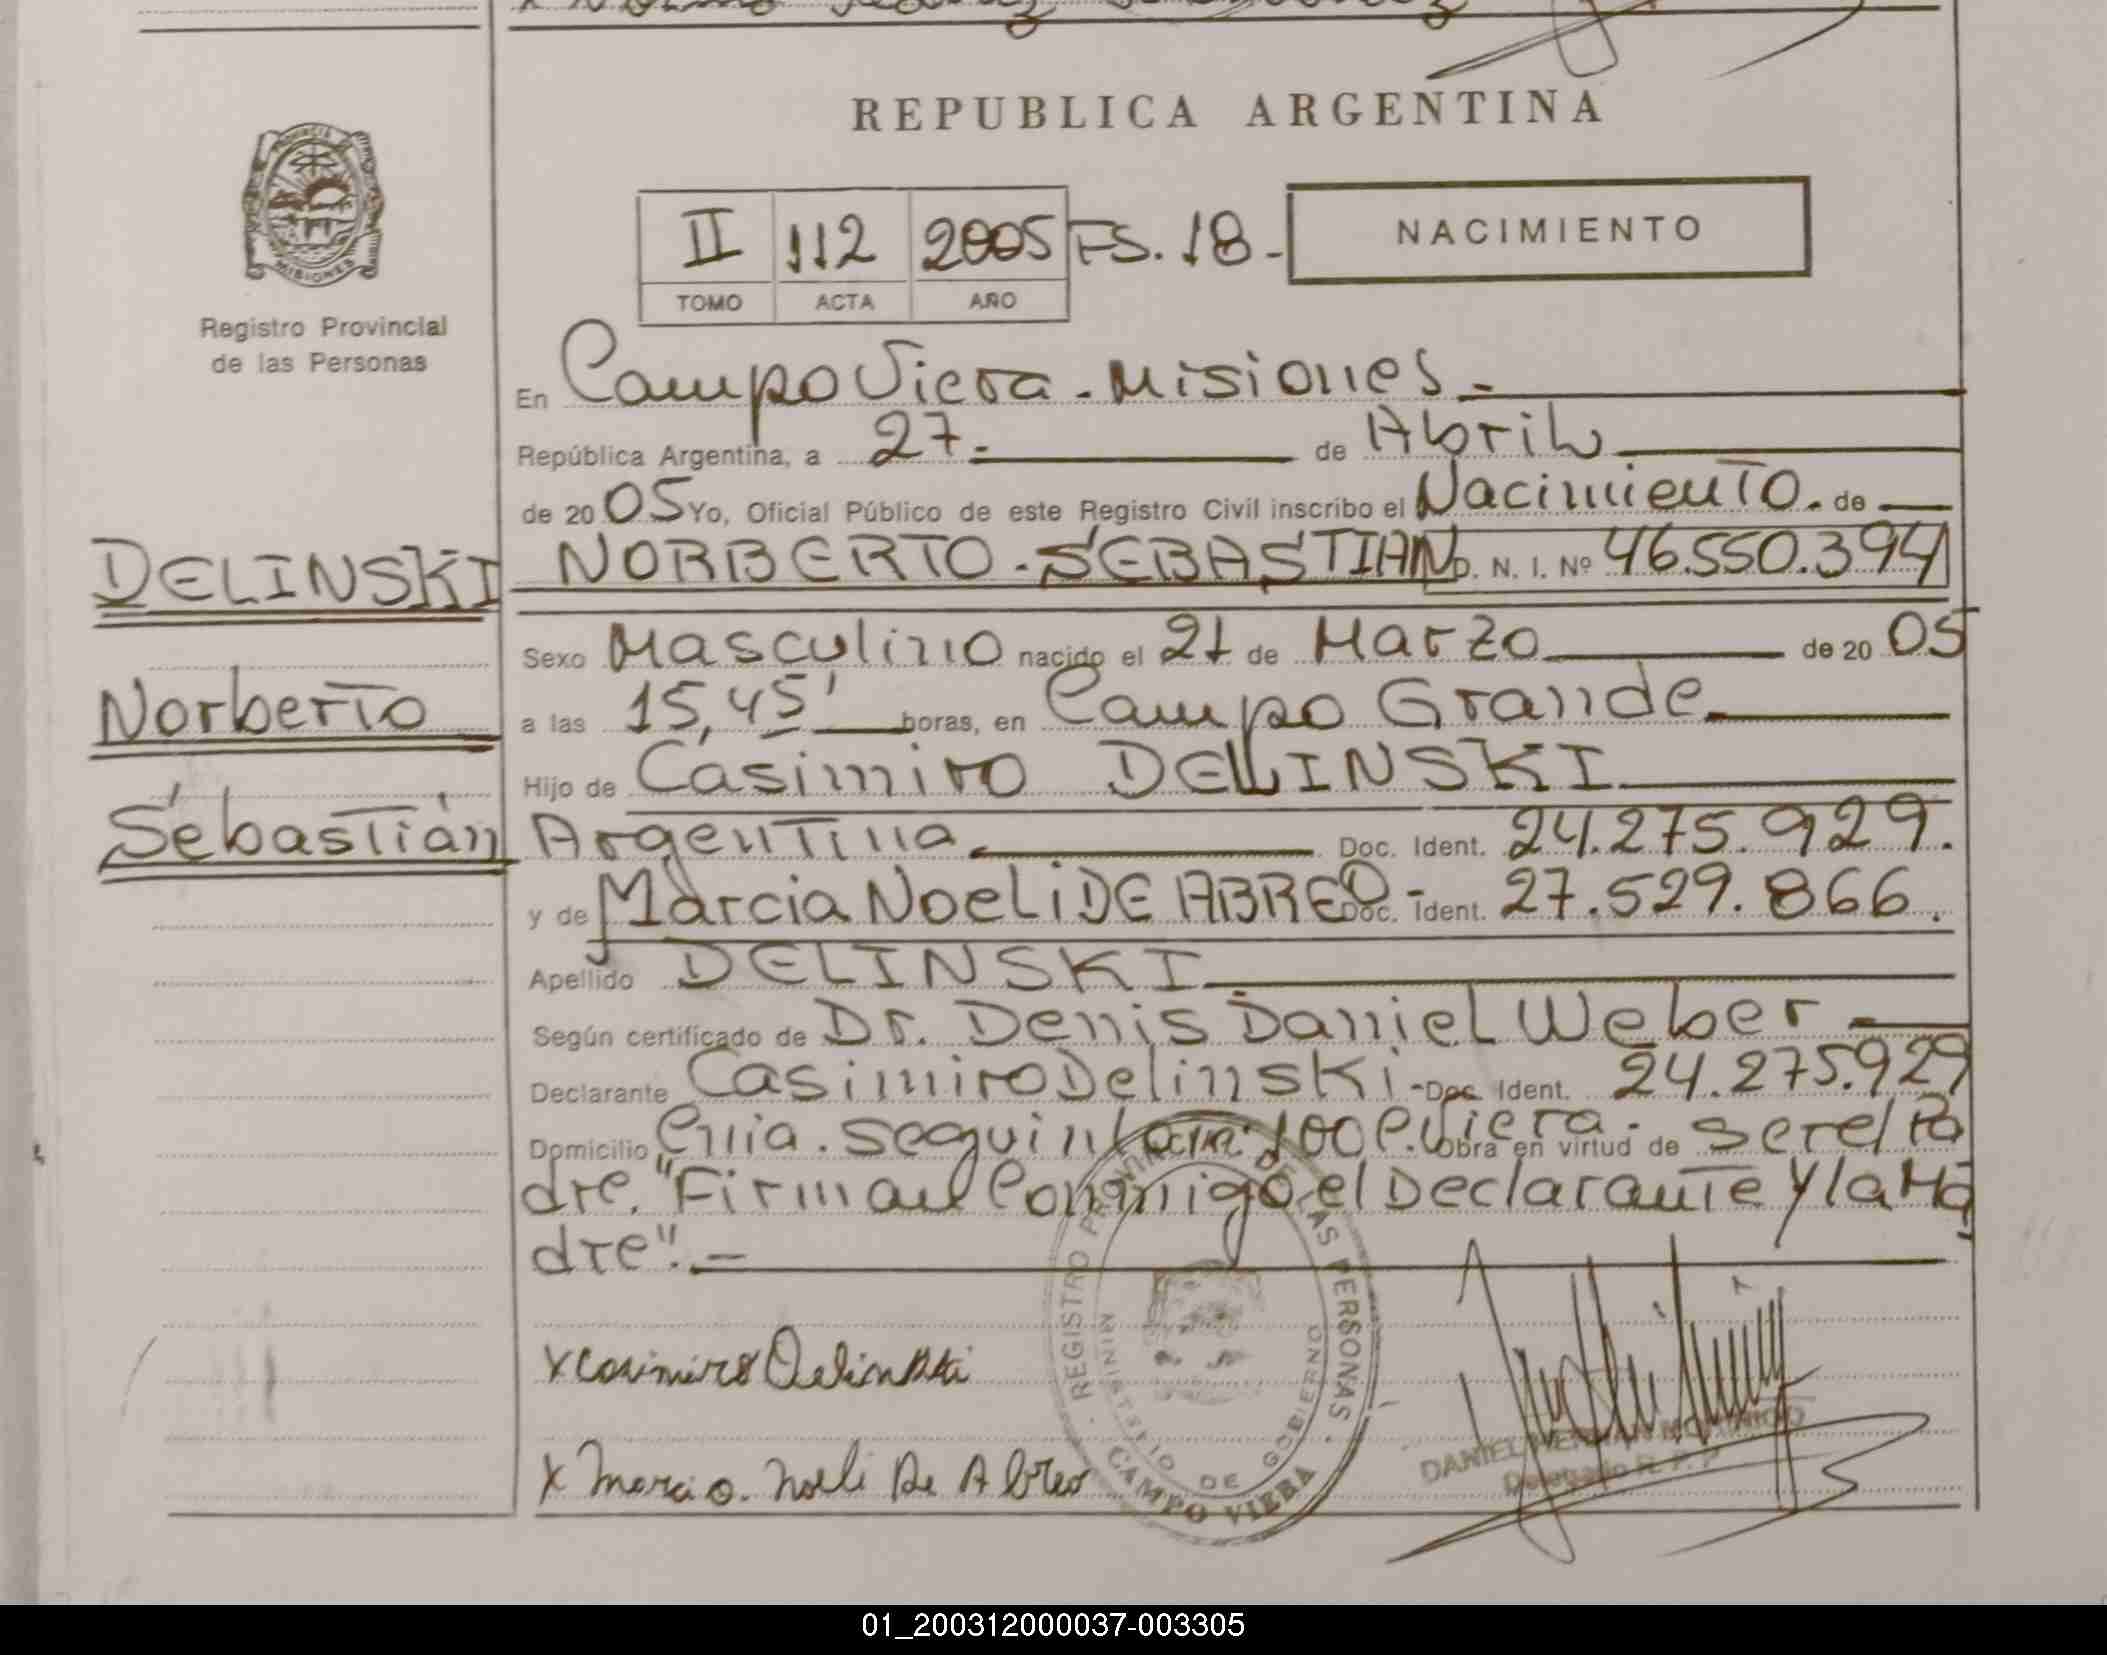 REPUBLICA ARGENTINA
PROVINCIA
MISIONES
Registro Provincial
de las Personas
II 112 2005 FS. 18.-
TOMO ACTA AÑO
NACIMIENTO
En Campo Viera - Misiones.-
República Argentina, a 27.- de Abril
de 20 05 Yo, Oficial Público de este Registro Civil inscribo el Nacimiento. de
DELINSKI NORBERTO - SEBASTIAN D. N. I. Nº 46.550.394
Sexo Masculino nacido el 21 de Marzo de 20 05
Norberto
a las 15,45' horas, en Campo Grande
Hijo de Casimiro DELINSKI
Sebastián
Argentina. Doc. Ident. 24.275.929.
y de Marcia Noeli DE ABREO - Doc. Ident. 27.529.866.
Apellido DELINSKI
Según certificado de Dr. Denis Daniel Weber -
Declarante Casimiro Delinski - Doc. Ident. 24.275.929
Domicilio 100 C. Viera. Obra en virtud de ser el Pa
dre. "Firman Conmigo el Declarante y la Ma
dre". -
X Casimiro Delinski
X Marcia. Noeli De Abreo
REGISTRO PROVINCIAL DE LAS PERSONAS
MINISTERIO DE GOBIERNO
CAMPO VIERA
DANIEL
Delegado R. P. P.
01_200312000037-003305